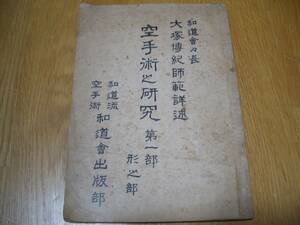 和道會々長
大塚博紀師範詳述
空手術之研究 第一部
形之部
和道流
空手術
和道會出版部